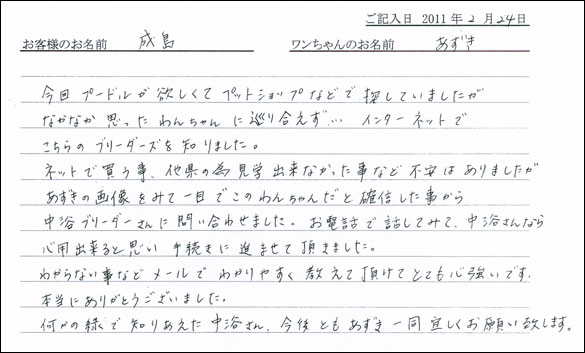 ご記入日 2011年2月24日
お客様のお名前 成島 ワンちゃんのお名前 あずき
今回 プードルが欲しくてペットショップなどで探していましたが
なかなか思ったわんちゃんに巡り合えず… インターネットで
こちらのブリーダーズを知りました。
ネットで買う事、他県の為見学出来なかった事など不安はありましたが
あずきの画像をみて一目でこのわんちゃんだと確信した事から
中浴ブリーダーさんに問い合わせました。お電話で話してみて、中浴さんなら
心用出来ると思い 手続きに進ませて頂きました。
わからない事など メールで わかりやすく 教えて頂けてとても心強いです。
本当にありがとうございました。
何かの縁で知りあえた中浴さん、今後ともあずき一同宜しくお願い致します。